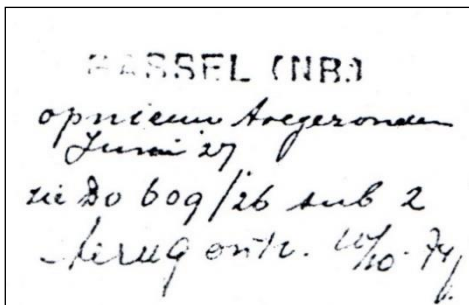 GASSEL (NB.)
opnieuw toegezonden
Juni 27
zie Do 609/26 sub 2
terug ontv.